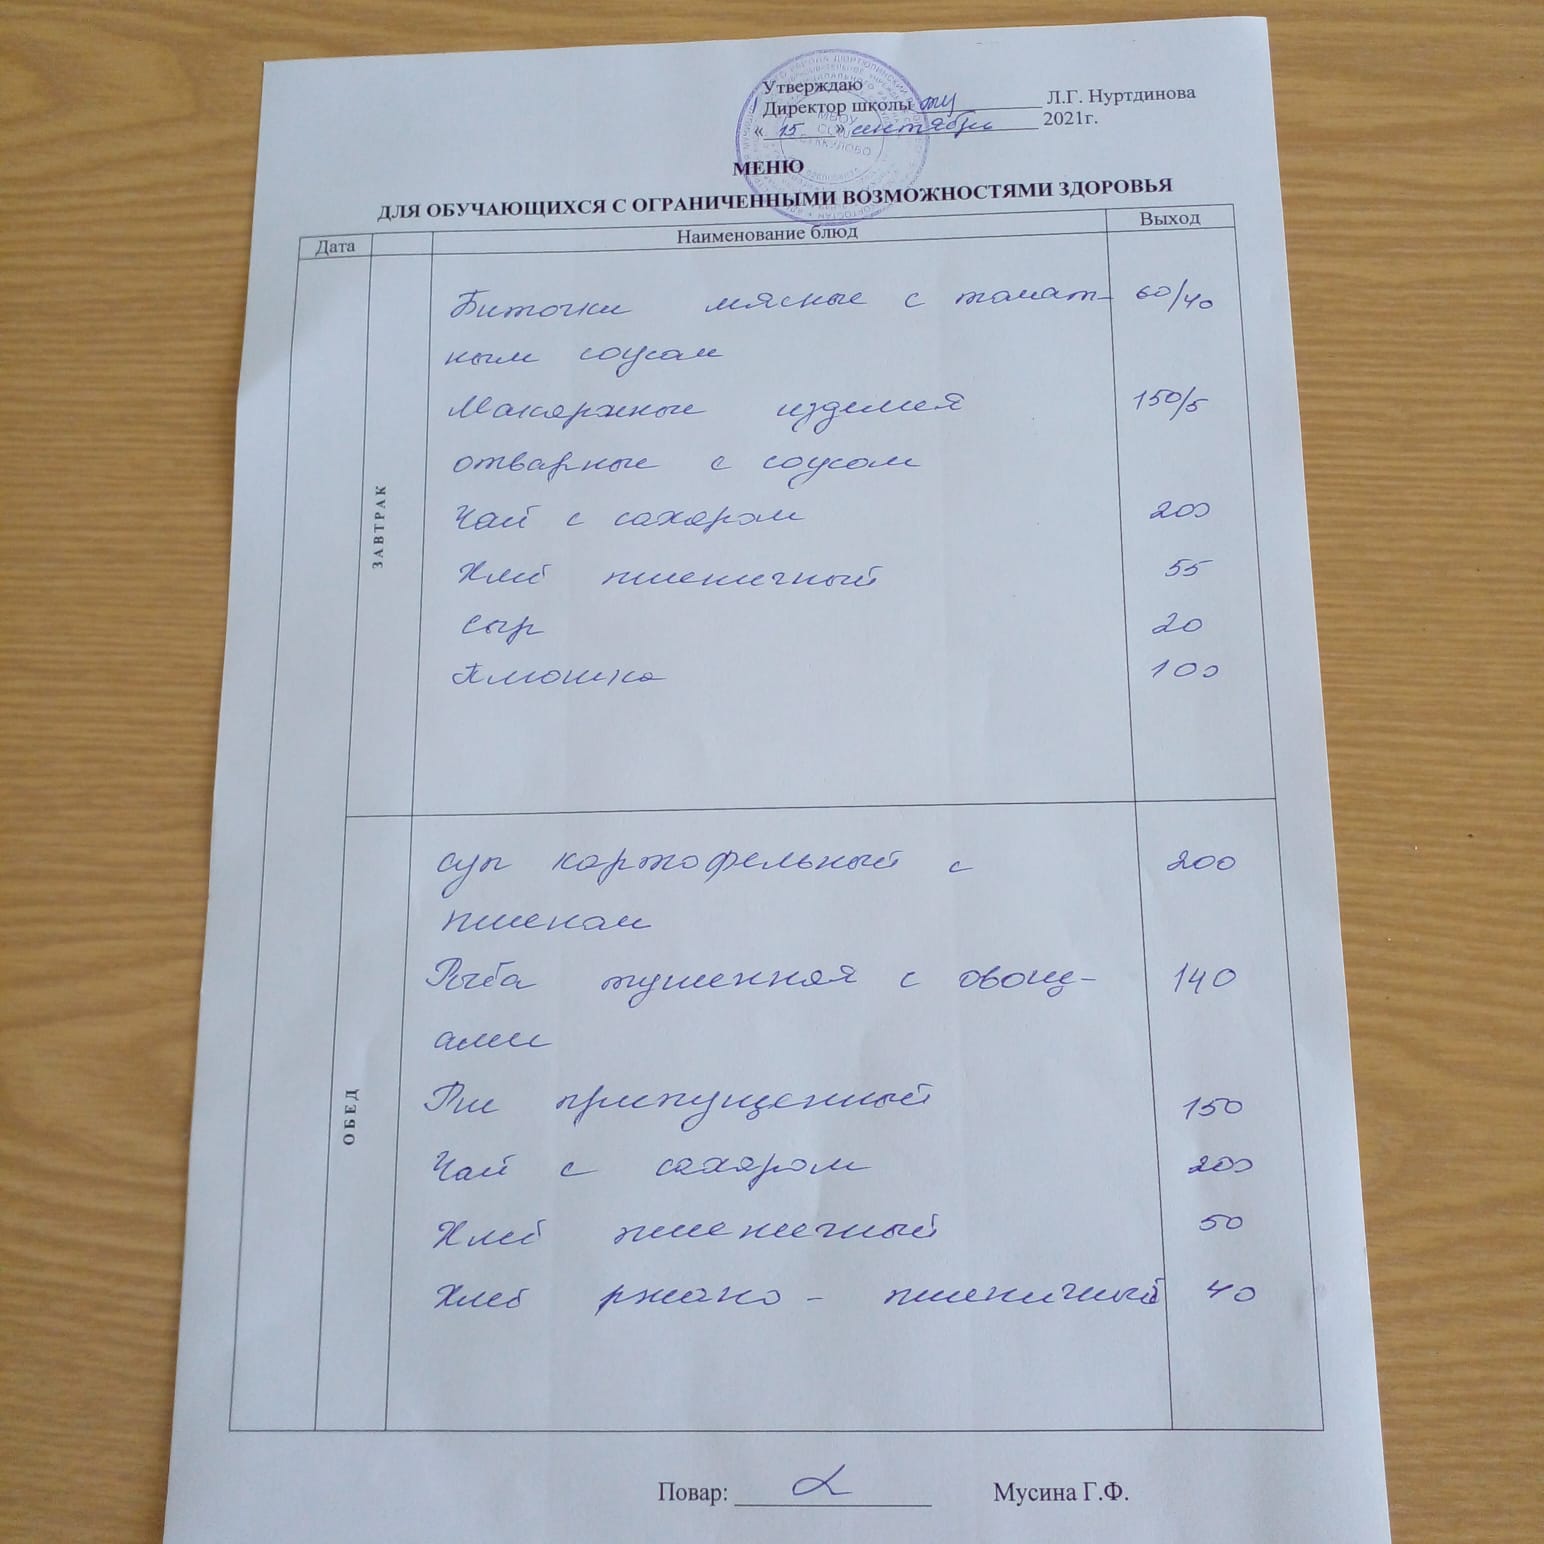 Утверждаю
Директор школы Л.Г. Нуртдинова
« 15 » сентября 2021г.
МБОУ
СОШ
МЕНЮ
ДЛЯ ОБУЧАЮЩИХСЯ С ОГРАНИЧЕННЫМИ ВОЗМОЖНОСТЯМИ ЗДОРОВЬЯ
Дата Наименование блюд Выход
ЗАВТРАК
Биточки мясные с томат- 60/40
ным соусом
Макаронные изделия 150/5
отварные с соусом
Чай с сахаром 200
Хлеб пшеничный 55
сыр 20
Плюшка 100
ОБЕД
суп картофельный с 200
пшеном
Рыба тушенная с овощ- 140
ами
Рис припущенный 150
Чай с сахаром 200
Хлеб пшеничный 50
Хлеб ржано - пшеничный 40
Повар: Мусина Г.Ф.